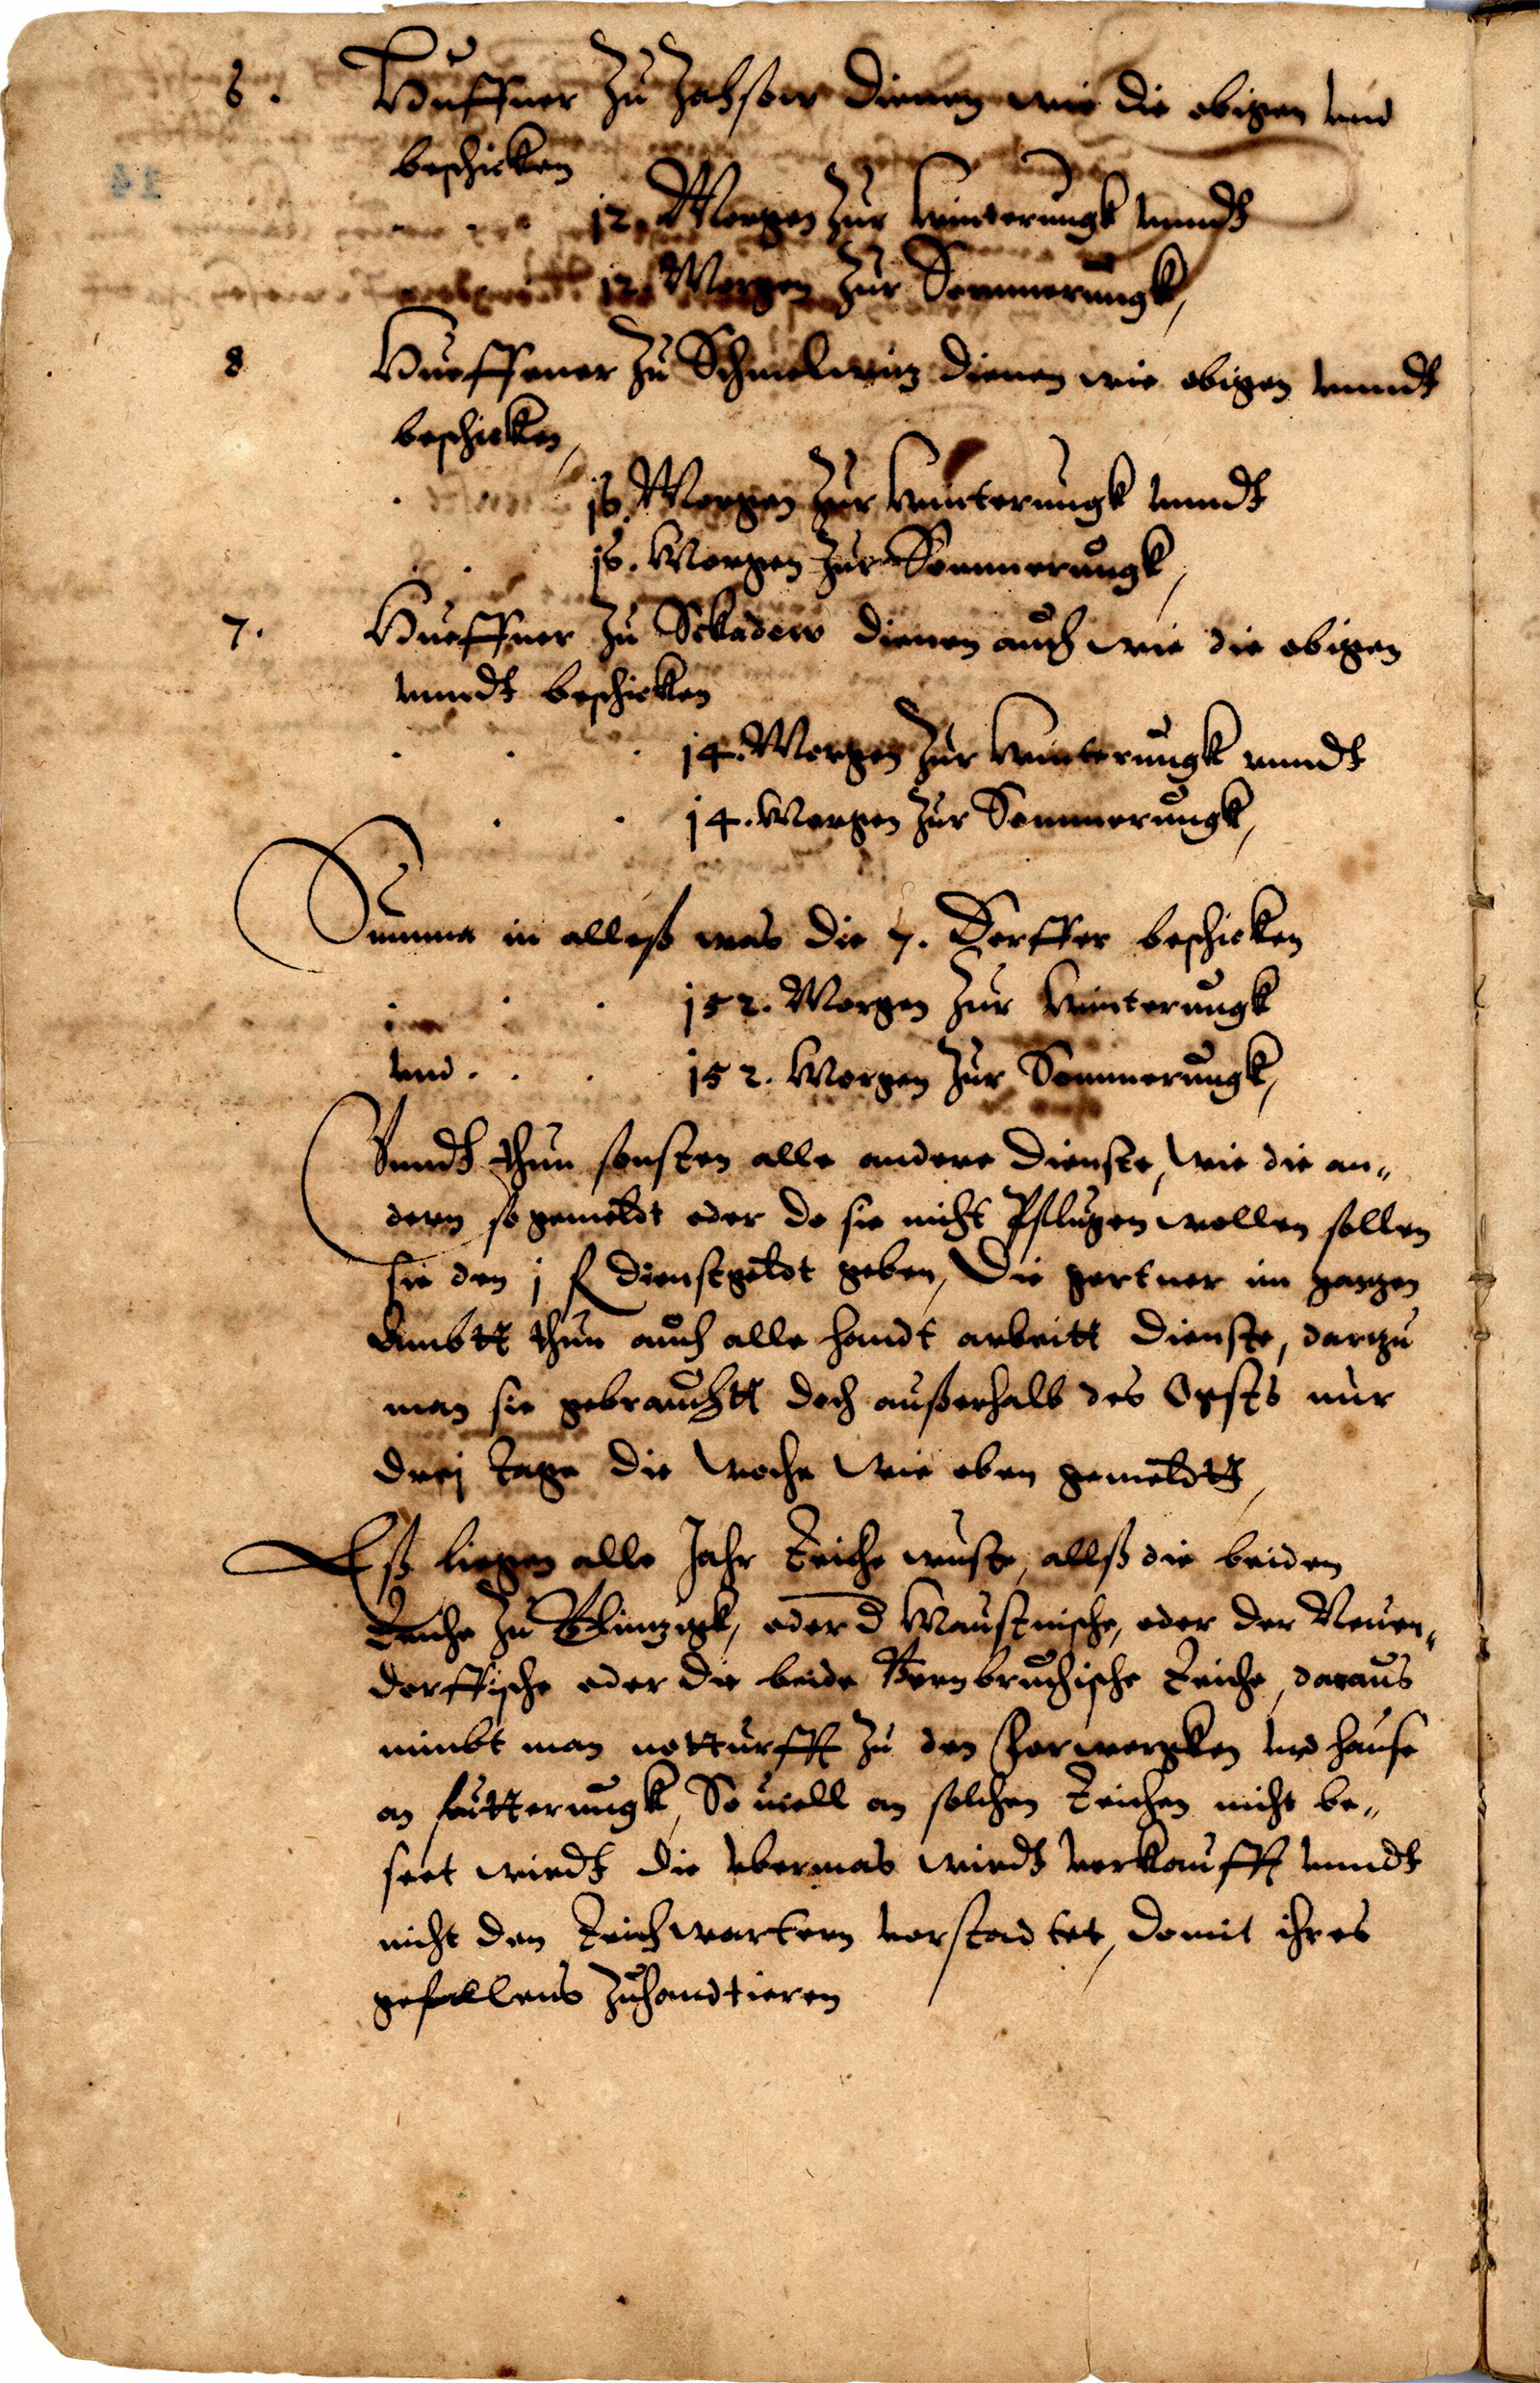 6. Huffner Zu Zahsow dienen wie die obigen vnd
beschicken
12. Morgen Zur Winterungk vnndt
12. Morgen Zur Sommerungk,
8 Hueffener Zu Schmelwitz dienen wie obigen vnndt
beschicken,
16. Morgen Zur Winterungk vnndt
16. Morgen Zur Sommerungk,
7. Hueffner Zu Sckadow dienen auch wie die obigen
vnndt beschicken
14. Morgen Zur Winterungk vnndt
14. Morgen Zur Sommerungk,
Summa in alleß was die 7. Dorffer beschicken
152. Morgen Zur Winterungk
vnd 152. Morgen Zur Sommerungk,
Vnndt thun sonsten alle andere Dienste, wie die an„
dern so gemeldt oder do sie nicht Pflugen wollen sollen
sie den j fl dienstgeldt geben, Die gertner im gantzen
Ambtt thun auch alle handt arbeitt Dienste, dartzu
man sie gebrauchtt doch außerhalb des Ogsts nur
drej tage die woche wie oben gemeldtt,
Eß liegen alle Jahr teiche wuste, allß die beiden
Teiche Zu Glintzigk, oder d Maustnische, oder der Neuen„
dorffische oder die beide Bernbruchische teiche, daraus
nimbt man notturfft Zu den Forwergken vnd hause
an futterungk, So uiell an solchen teichen nicht be„
seet wirdt die vbermas wirdt verkaufft vnndt
nicht den teichwartern verstadtet, domit ihres
gefallens Zuhandtieren
14